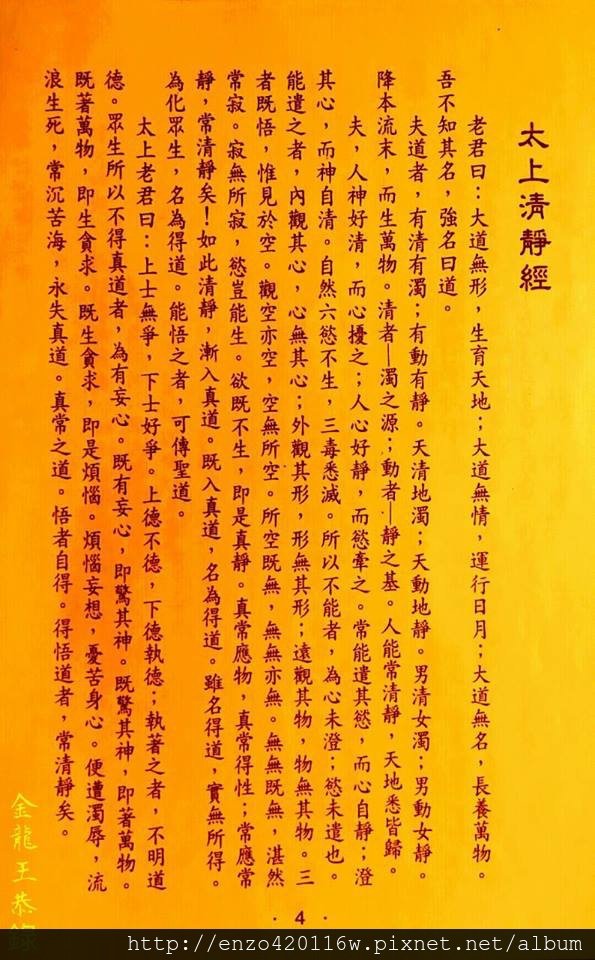 太上清靜經
老君曰：大道無形，生育天地；大道無情，運行日月；大道無名，長養萬物。
吾不知其名，強名曰道。
夫道者，有清有濁；有動有靜。天清地濁；天動地靜。男清女濁；男動女靜。
降本流末，而生萬物。清者—濁之源；動者—靜之基。人能常清靜，天地悉皆歸。
夫，人神好清，而心擾之；人心好靜，而慾牽之。常能遣其慾，而心自靜；澄
其心，而神自清。自然六慾不生，三毒悉滅。所以不能者，為心未澄；慾未遣也。
能遣之者，內觀其心，心無其心；外觀其形，形無其形；遠觀其物，物無其物。三
者既悟，惟見於空。觀空亦空，空無所空。所空既無，無無亦無。無無既無，湛然
常寂。寂無所寂，慾豈能生。欲既不生，即是真靜。真常應物，真常得性；常應常
靜，常清靜矣！如此清靜，漸入真道。既入真道，名為得道。雖名得道，實無所得。
為化眾生，名為得道。能悟之者，可傳聖道。
太上老君曰：上士無爭，下士好爭。上德不德，下德執德；執著之者，不明道
德。眾生所以不得真道者，為有妄心。既有妄心，即驚其神。既驚其神，即著萬物。
既著萬物，即生貪求。既生貪求，即是煩惱。煩惱妄想，憂苦身心。便遭濁辱，流
浪生死，常沉苦海，永失真道。真常之道。悟者自得。得悟道者，常清靜矣。
· 4 ·
金龍王恭錄
http://enzo420116w.pixnet.net/album